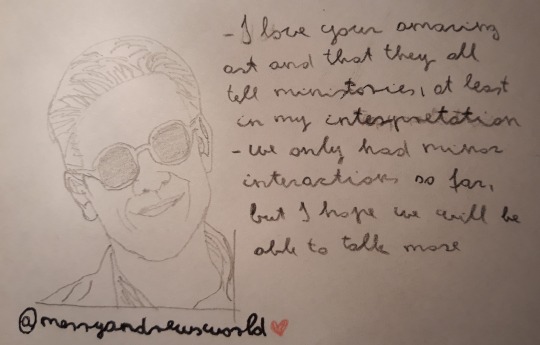 - I love your amazing
art and that they all
tell ministories, at least
in my interpretation
- we only had minor
interactions so far,
but I hope we will be
able to talk more
@merryandrewsworld ❤